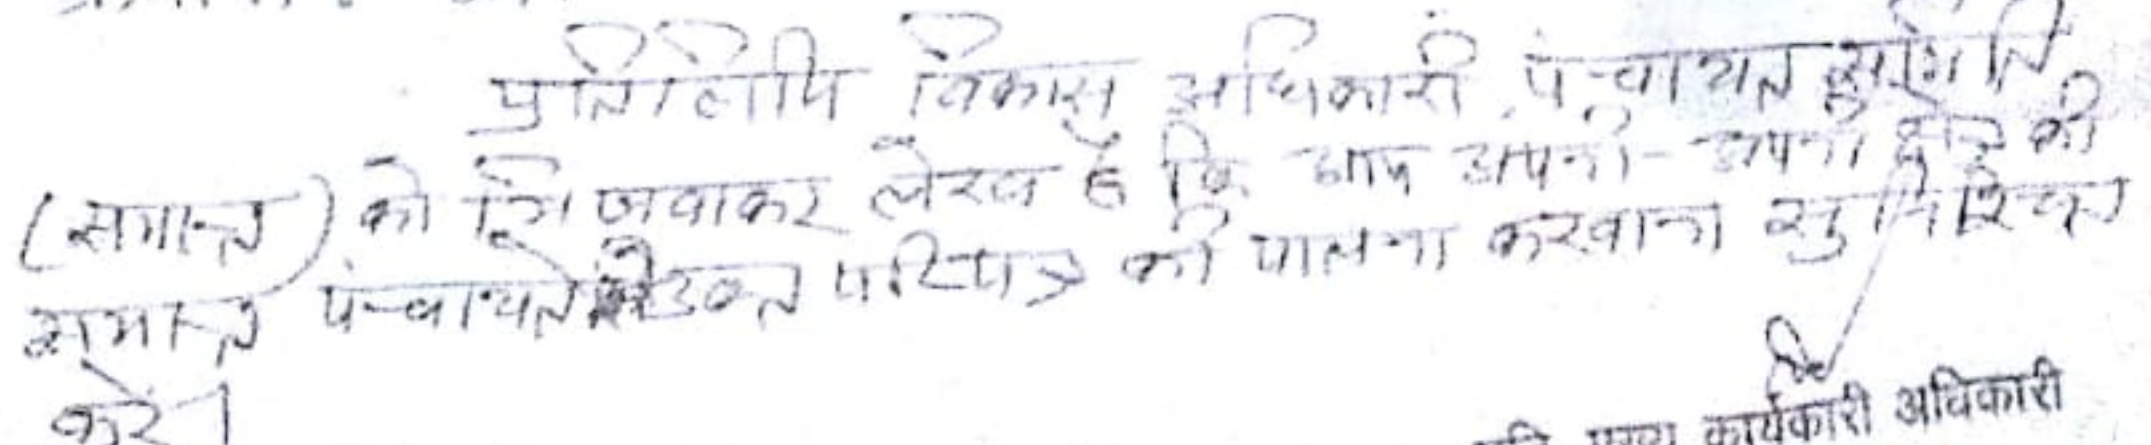 प्रतिलिपि विकास अधिकारी, पंचायत समिति
(समस्त) को भिजवाकर लेख है कि आप अपनी-अपनी क्षेत्र की
समस्त पंचायतों से उक्त परिपत्र की पालना करवाना सुनिश्चित
करें।
मुख्य कार्यकारी अधिकारी